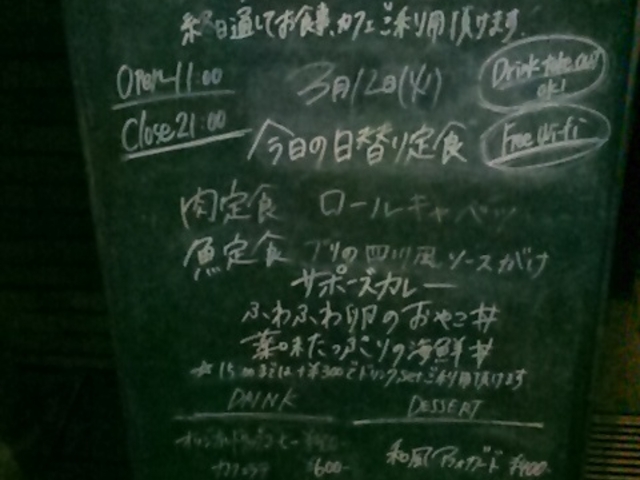 終日通してお食事、カフェご利用頂けます。
Open 11:00
3月12日(火)
Drink take out ok!
Close 21:00
今日の日替り定食
Free Wi-Fi
肉定食 ロールキャベツ
魚定食 ブリの四川風ソースがけ
サポーズカレー
ふわふわ卵のおやこ丼
薬味たっぷりの海鮮丼
☆15:00までは+¥300でドリンクSetご利用頂けます
DRINK
DESSERT
カフェラテ ¥600-
和風アフォガード